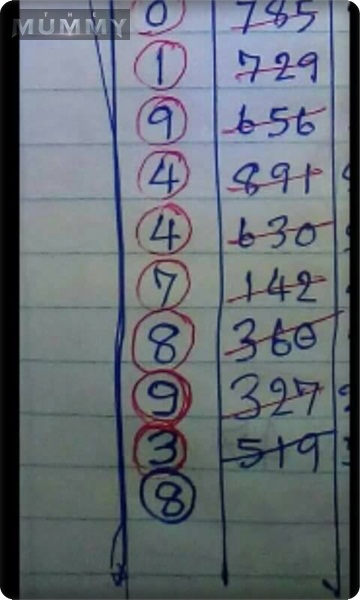 THE MUMMY
0 785
1 729
9 656
4 891
4 630
7 142
8 360
9 327
3 519
8